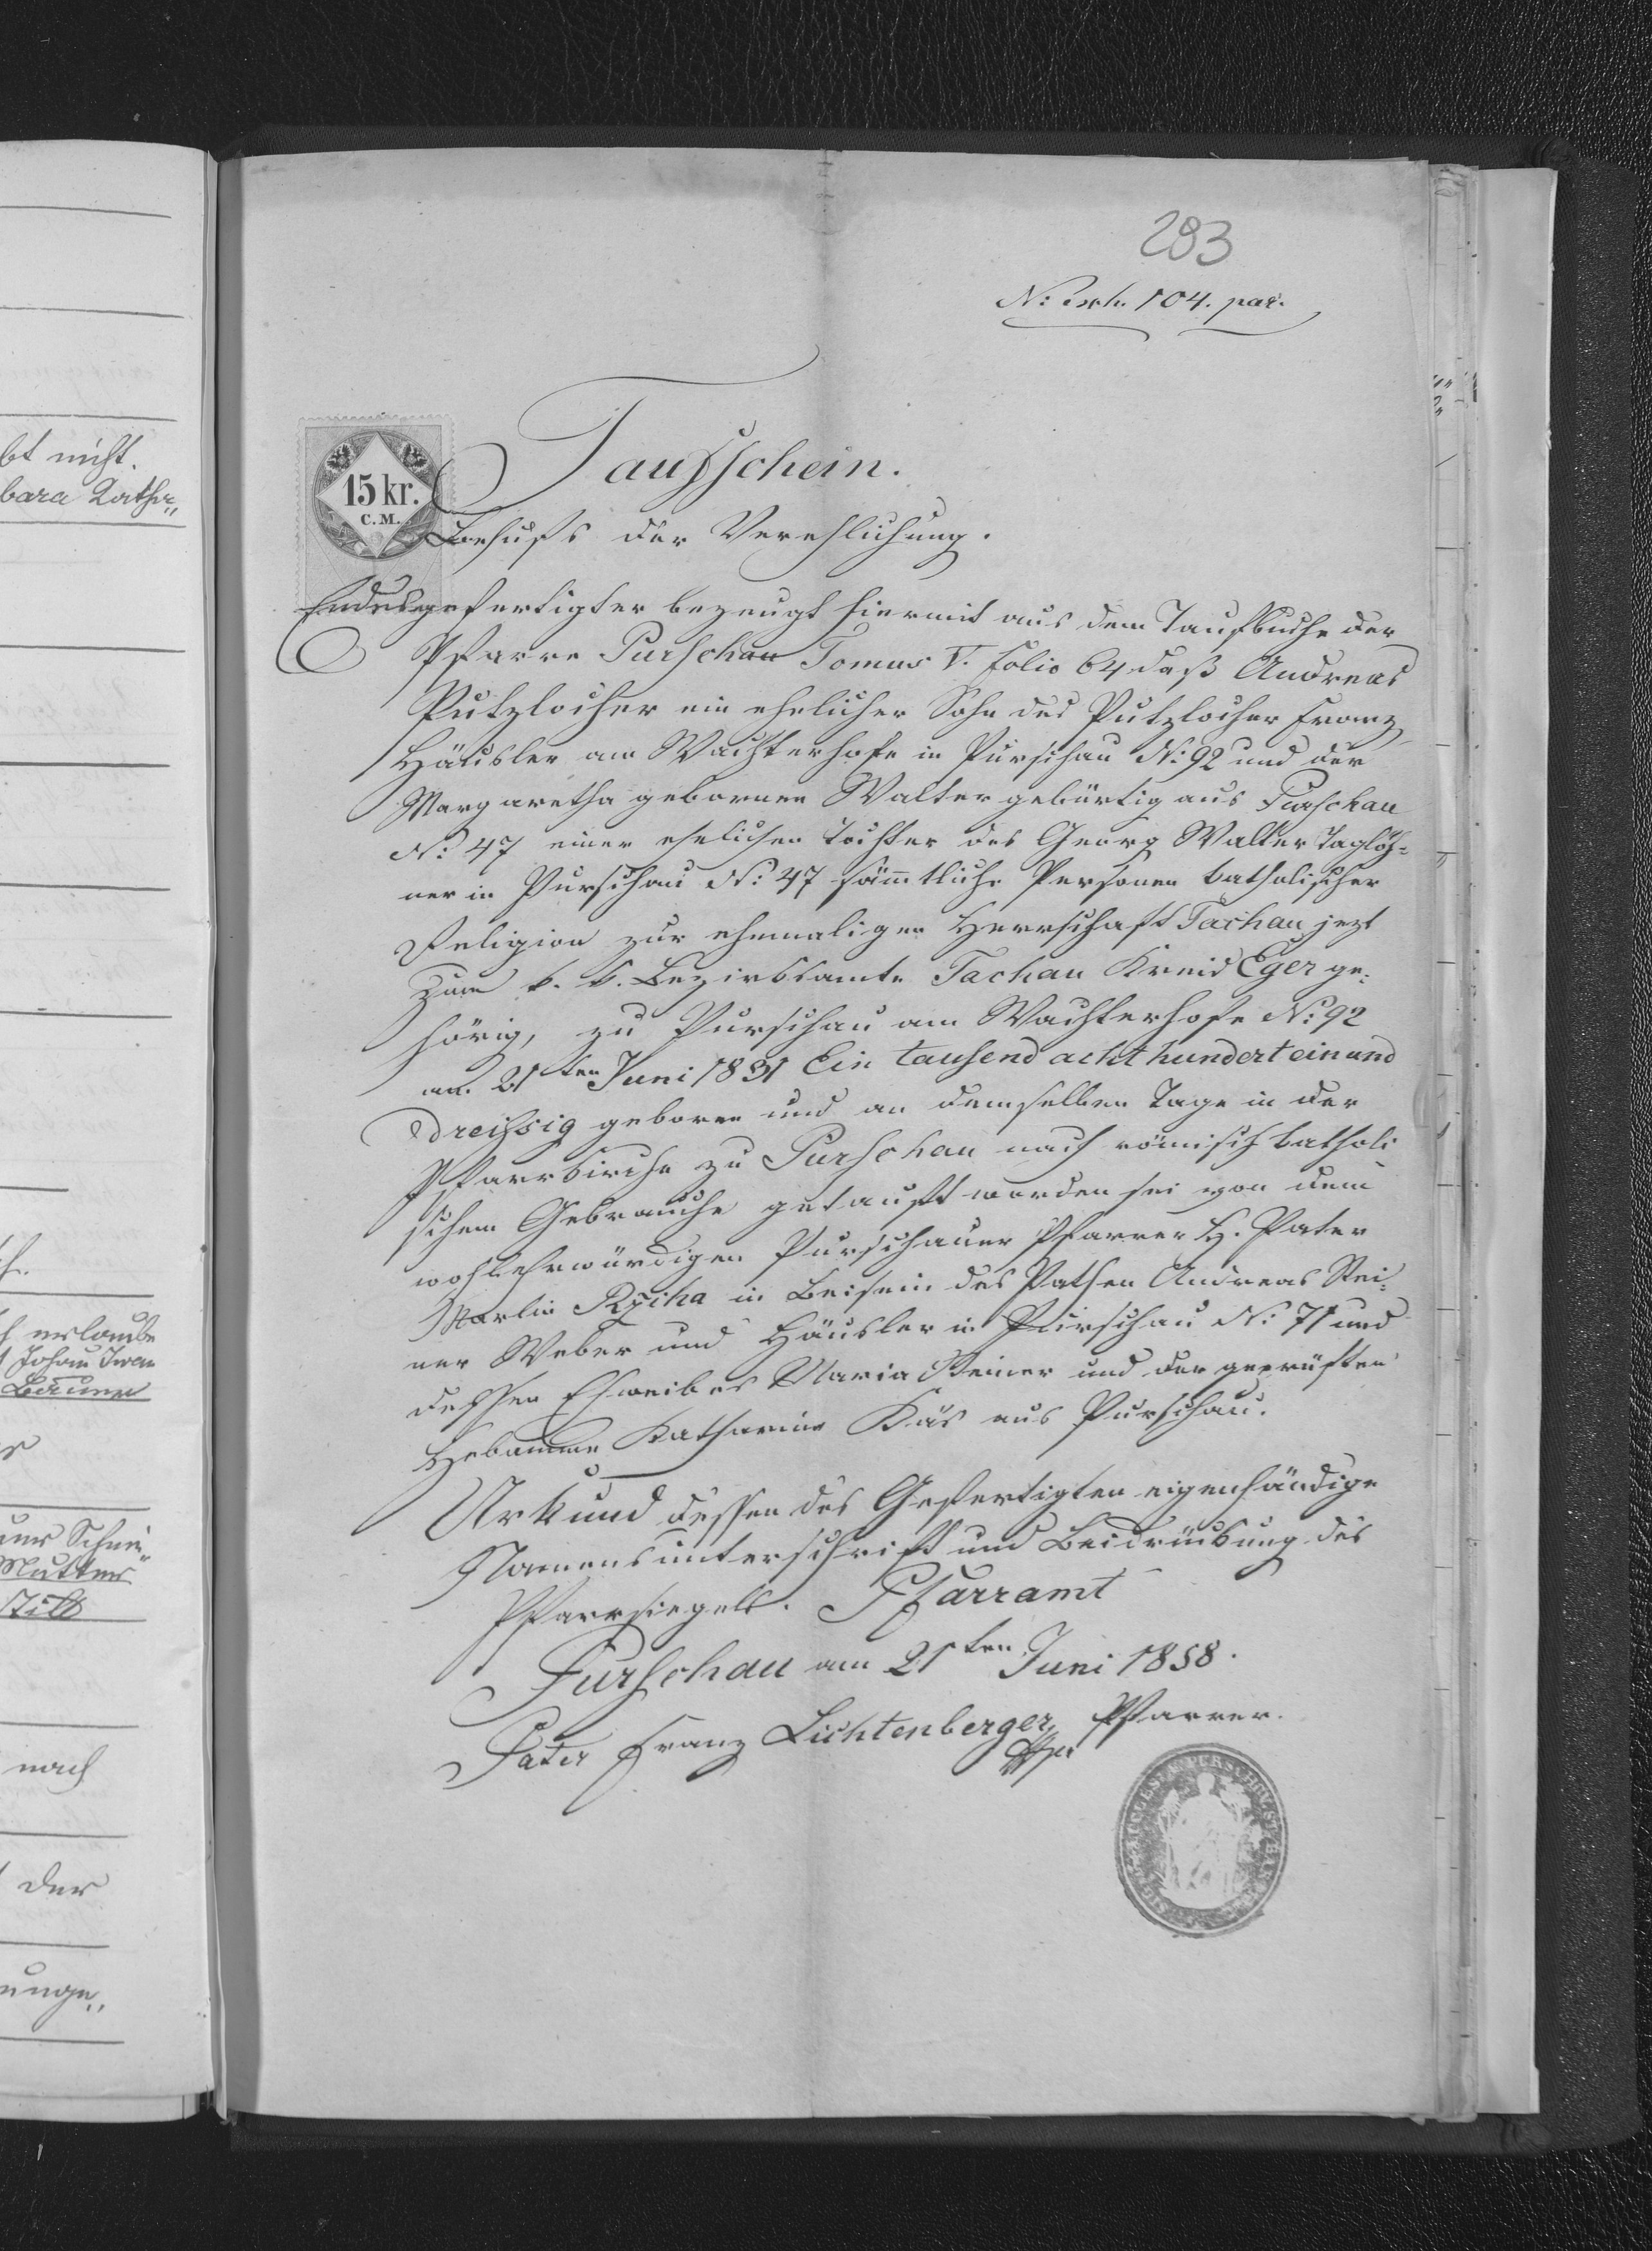 bt nicht.
bara Kathr„
h.
h erlaubt
Johann
er
Mutter
nach
der
unge„
283
N: exh. 104. par.
15 kr.
C.M.
Taufschein.
Behufs der Verehlichung.
Endesgefertigter bezeugt hiermit aus dem Taufbuche der
Pfarre Purschau Tomus V. Folio 64 daß Andreas
Putzlocher ein ehelicher Sohn des Putzlocher Franz
Häusler am Wachterhofe in Purschau N: 92 und der
Margaretha gebornen Walter gebürtig aus Purschau
N: 47 einer ehelichen Tochter des Georg Walter Taglöh=
ner in Purschau N: 47 sämmtliche Personen katholischer
Religion zur ehemaligen Herrschaft Tachau jezt
zum k. k. Bezirksamte Tachau Kreis Eger ge=
hörig, zu Purschau am Wachterhofe N: 92
am 21ten Juni 1831 Ein tausend acht hundert einund
dreißsig geboren und an demselben Tage in der
Pfarrkirche zu Purschau nach römisch katholi
schem Gebrauche getauft worden sei von dem
wohlehrwürdigen Purschauer Pfarrer H. Pater
Martin Ržiha in Beisein des Pathen Andreas Stei=
ner Weber und Häusler in Purschau N: 71 und
dessen Eheweibes Maria Steiner und der geprüften
Hebamme Katharina Käs aus Purschau.
Urkund dessen des Gefertigten eigenhändige
Namensunterschrift und Beidrückung des
Pfarrsiegels. Pfarramt
Purschau am 21ten Juni 1858.
Pater Franz Lichtenberger Pfarrer.